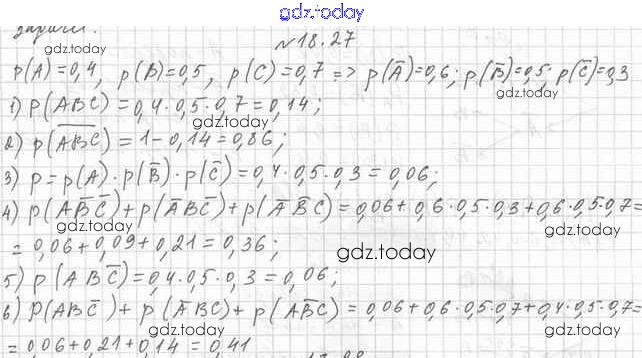 gdz.today
задачи.
gdz.today
№18.27
p(A)=0,4, p(B)=0,5, p(C)=0,7 => p(A̅)=0,6; p(B̅)=0,5; p(C̅)=0,3
gdz.today
1) p(ABC)=0,4·0,5·0,7=0,14;
gdz.today
2) p(A̅B̅C̅)=1-0,14=0,86;
3) p=p(A)·p(B̅)·p(C̅)=0,4·0,5·0,3=0,06;
gdz.today
gdz.today
4) p(AB̅C̅)+p(A̅BC̅)+p(A̅B̅C)=0,06+0,6·0,5·0,3+0,6·0,5·0,7=
=0,06+0,09+0,21=0,36;
gdz.today
gdz.today
5) p(ABC̅)=0,4·0,5·0,3=0,06;
6) P(ABC̅)+p(A̅BC)+p(AB̅C)=0,06+0,6·0,5·0,7+0,4·0,5·0,7=
gdz.today
gdz.today
=0,06+0,21+0,14=0,41